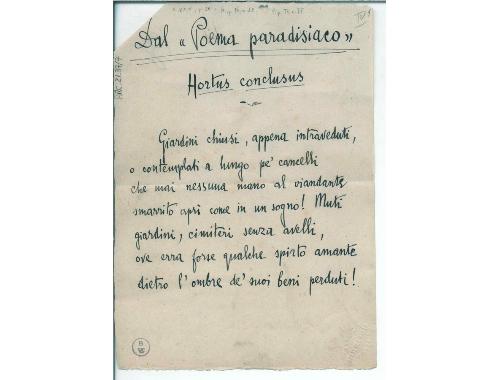 Dal « Poema paradisiaco »
Hortus conclusus
Giardini chiusi, appena intraveduti,
o contemplati a lungo pe' cancelli
che mai nessuna mano al viandante
smarrito aprì come in un sogno! Muti
giardini, cimiteri senza avelli,
ove erra forse qualche spirto amante
dietro l'ombre de' suoi beni perduti!